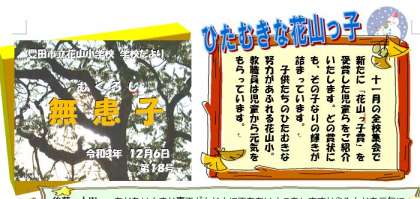 豊田市立花山小学校 学校だより
むくろじ
無患子
令和3年 12月6日
第18号
ひたむきな花山っ子
十一月の全校集会で
新たに「花山っ子賞」を
受賞した児童らをご紹介
いたします。どの賞状に
も、その子なりの輝きが
詰まっています。
子供たちのひたむきな
努力があふれる花山小。
教職員は児童から元気を
もらっています。